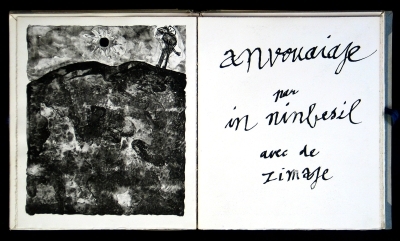 anvouaiaje
par
in ninbesil
avec de
zimaje